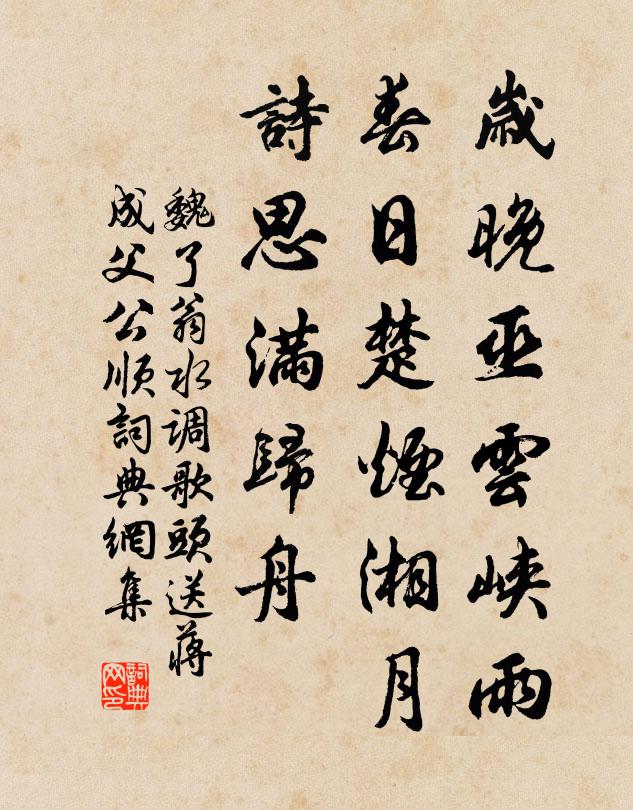 歲晚巫雲峽雨
春日楚煙湘月
詩思滿歸舟
魏了翁水调歌頭送蔣
成父公順詞典網集
詞典
网印